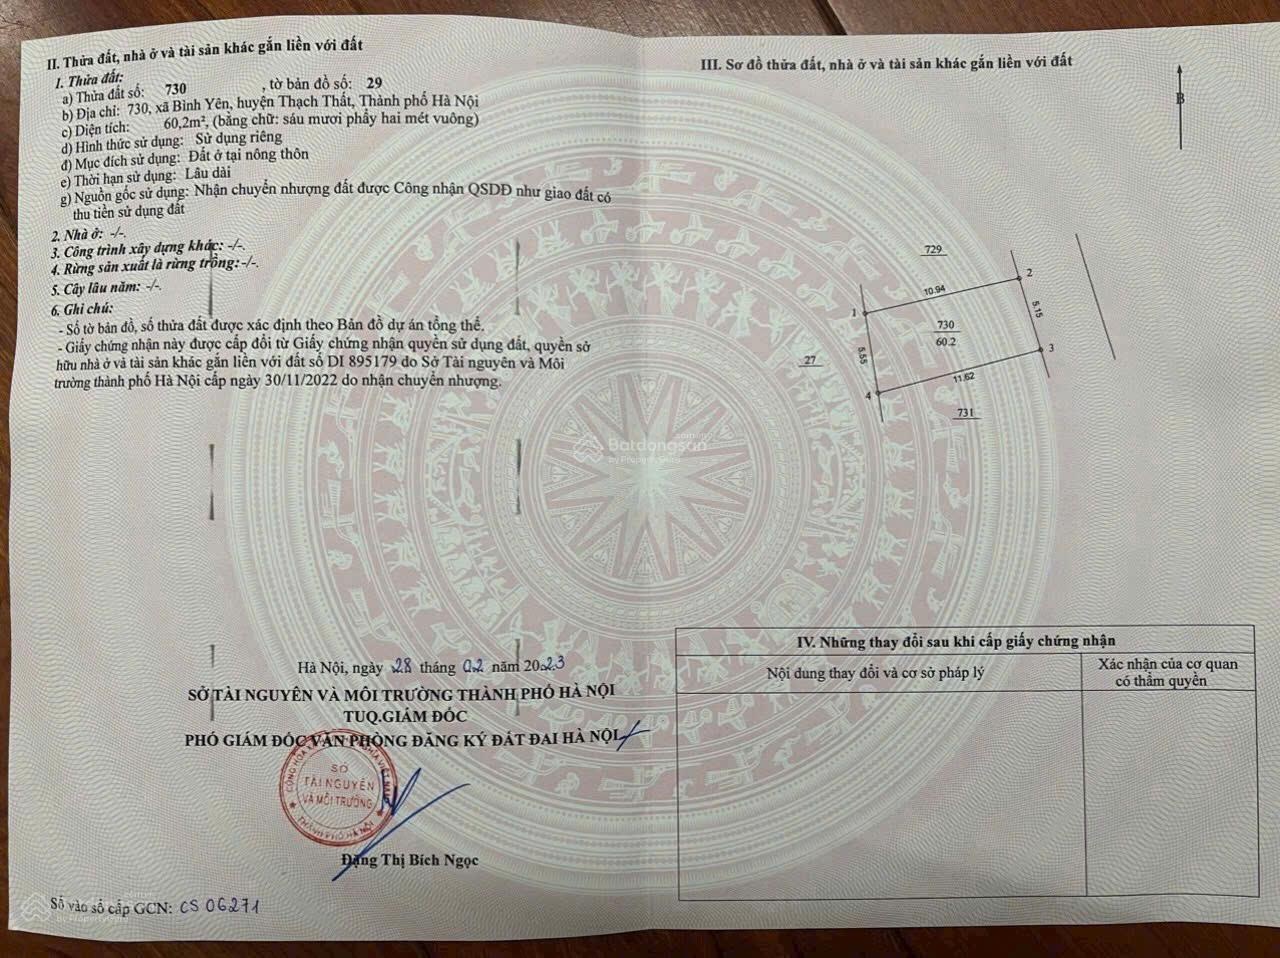 II. Thửa đất, nhà ở và tài sản khác gắn liền với đất
1. Thửa đất:
a) Thửa đất số: 730 , tờ bản đồ số: 29
b) Địa chỉ: 730, xã Bình Yên, huyện Thạch Thất, Thành phố Hà Nội
c) Diện tích: 60,2m², (bằng chữ: sáu mươi phẩy hai mét vuông)
d) Hình thức sử dụng: Sử dụng riêng
đ) Mục đích sử dụng: Đất ở tại nông thôn
e) Thời hạn sử dụng: Lâu dài
g) Nguồn gốc sử dụng: Nhận chuyển nhượng đất được Công nhận QSDĐ như giao đất có
thu tiền sử dụng đất
2. Nhà ở: -/-.
3. Công trình xây dựng khác: -/-.
4. Rừng sản xuất là rừng trồng:-/-.
5. Cây lâu năm: -/-.
6. Ghi chú:
- Số tờ bản đồ, số thửa đất được xác định theo Bản đồ dự án tổng thể.
- Giấy chứng nhận này được cấp đổi từ Giấy chứng nhận quyền sử dụng đất, quyền sở
hữu nhà ở và tài sản khác gắn liền với đất số DI 895179 do Sở Tài nguyên và Môi
trường thành phố Hà Nội cấp ngày 30/11/2022 do nhận chuyển nhượng.
Hà Nội, ngày 28 tháng 02 năm 2023
SỞ TÀI NGUYÊN VÀ MÔI TRƯỜNG THÀNH PHỐ HÀ NỘI
TUQ.GIÁM ĐỐC
PHÓ GIÁM ĐỐC VĂN PHÒNG ĐĂNG KÝ ĐẤT ĐAI HÀ NỘI
SỞ
TÀI NGUYÊN
VÀ MÔI TRƯỜNG
THÀNH PHỐ HÀ NỘI
Đặng Thị Bích Ngọc
Số vào sổ cấp GCN: CS 06271
III. Sơ đồ thửa đất, nhà ở và tài sản khác gắn liền với đất
B
729
2
10.94
1
730
60.2
5.15
5.55
27
3
11.62
4
731
Batdongsan
by PropertyGuru
IV. Những thay đổi sau khi cấp giấy chứng nhận
Nội dung thay đổi và cơ sở pháp lý
Xác nhận của cơ quan
có thẩm quyền